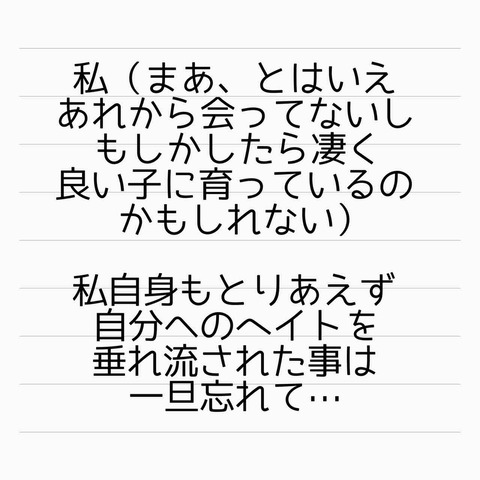 私（まあ、とはいえ
あれから会ってないし
もしかしたら凄く
良い子に育っているの
かもしれない）
私自身もとりあえず
自分へのヘイトを
垂れ流された事は
一旦忘れて…